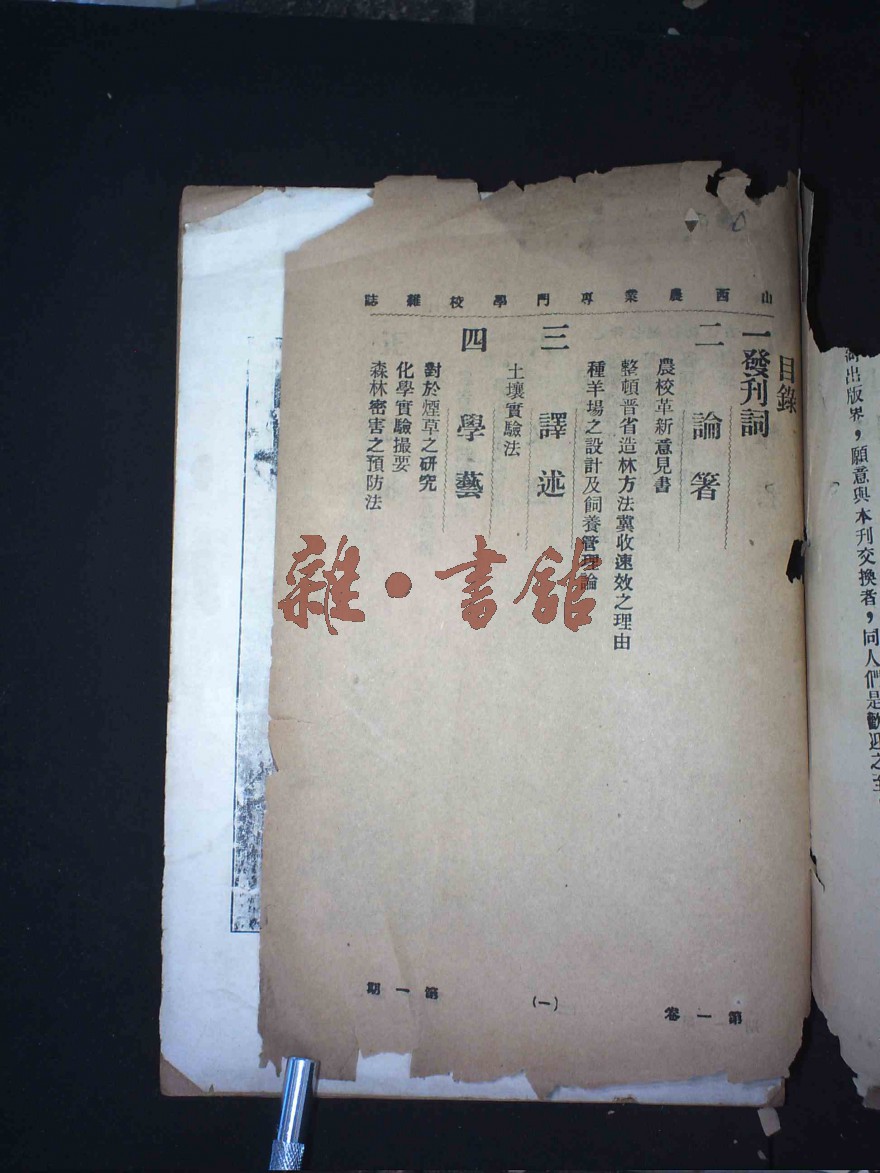 海出版界，願意與本刊交換者，同人們是歡迎之至
山西農業專門學校雜誌
目錄
一發刊詞
二 論箸
農校革新意見書
整頓晋省造林方法冀收速效之理由
種羊場之設計及飼養管理論
三 譯述
土壤實驗法
四 學藝
對於煙草之研究
化學實驗撮要
森林密害之預防法
第一卷
(一)
第一期
雜·書館